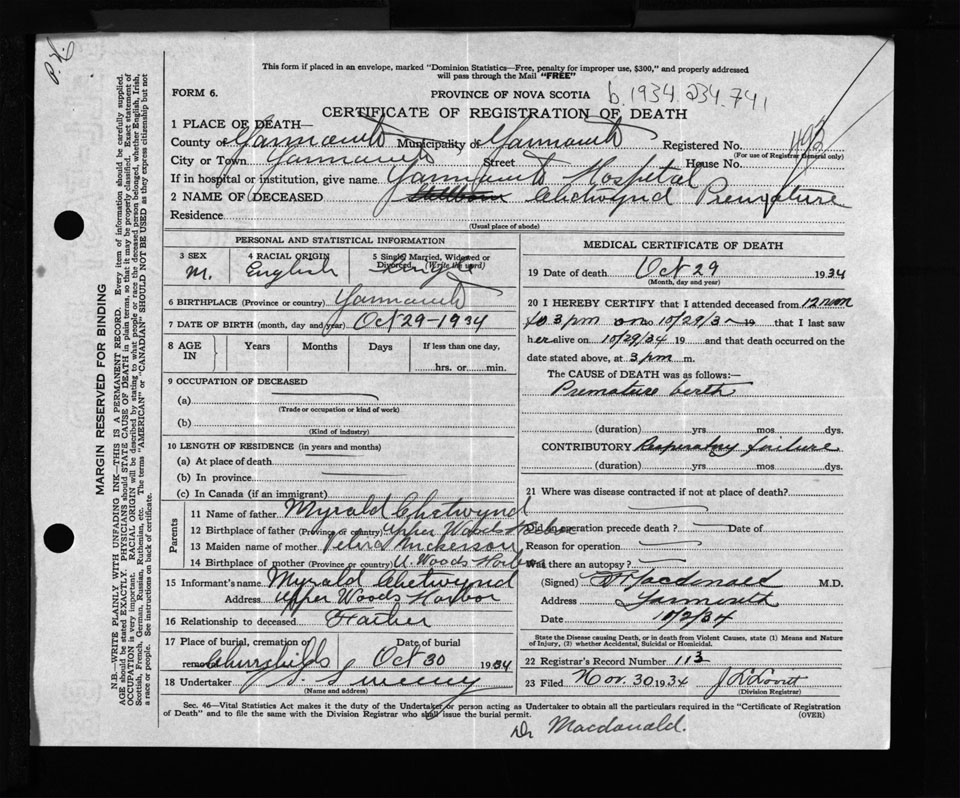 P.X.
This form if placed in an envelope, marked "Dominion Statistics—Free, penalty for improper use, $300," and properly addressed
will pass through the Mail "FREE"
FORM 6.
PROVINCE OF NOVA SCOTIA
b.1934.234.741
CERTIFICATE OF REGISTRATION OF DEATH
1 PLACE OF DEATH—
County of Yarmouth Municipality of Yarmouth Registered No. 493
(For use of Registrar General only)
City or Town Yarmouth Street House No.
If in hospital or institution, give name Yarmouth Hospital
2 NAME OF DECEASED Stillborn Chetwynd Premature
Residence
(Usual place of abode)
PERSONAL AND STATISTICAL INFORMATION
3 SEX 4 RACIAL ORIGIN 5 Single, Married, Widowed or Divorced (Write the word)
M. English Single
6 BIRTHPLACE (Province or country) Yarmouth
7 DATE OF BIRTH (month, day and year) Oct 29-1934
8 AGE IN Years Months Days If less than one day,
hrs. or min.
9 OCCUPATION OF DECEASED
(a)
(Trade or occupation or kind of work)
(b)
(Kind of industry)
10 LENGTH OF RESIDENCE (in years and months)
(a) At place of death
(b) In province
(c) In Canada (if an immigrant)
Parents
11 Name of father Myrald Chetwynd
12 Birthplace of father (Province or country) Upper Woods Harbor
13 Maiden name of mother Nickerson
14 Birthplace of mother (Province or country) U. Woods Harbor
15 Informant's name Myrald Chetwynd
Address Upper Woods Harbor
16 Relationship to deceased Father
17 Place of burial, cremation or removal Date of burial
Oct 30 1934
18 Undertaker Sweeny
(Name and address)
MEDICAL CERTIFICATE OF DEATH
19 Date of death Oct 29 1934
(Month, day and year)
20 I HEREBY CERTIFY that I attended deceased from 12 noon
to 3 pm on 10/29/3 19 that I last saw
her alive on 10/29/34 19 and that death occurred on the
date stated above, at 3 pm m.
The CAUSE of DEATH was as follows:—
Premature birth
(duration) yrs mos dys.
CONTRIBUTORY Respiratory failure
(duration) yrs mos dys.
21 Where was disease contracted if not at place of death?
Did an operation precede death? Date of
Reason for operation
Was there an autopsy?
(Signed) Macdonald M.D.
Address Yarmouth
Date 10/2/34
State the Disease causing Death, or in death from Violent Causes, state (1) Means and Nature
of Injury, (2) whether Accidental, Suicidal or Homicidal.
22 Registrar's Record Number 113
23 Filed Nov. 30 1934 Lovitt
(Division Registrar)
Sec. 46—Vital Statistics Act makes it the duty of the Undertaker or person acting as Undertaker to obtain all the particulars required in the "Certificate of Registration
of Death" and to file the same with the Division Registrar who shall issue the burial permit. (OVER)
Dr Macdonald.
MARGIN RESERVED FOR BINDING
N.B.—WRITE PLAINLY WITH UNFADING INK—THIS IS A PERMANENT RECORD. Every item of information should be carefully supplied.
AGE should be stated EXACTLY. PHYSICIANS should STATE CAUSE OF DEATH in plain terms, so that it may be properly classified. Exact statement of
OCCUPATION is very important. RACIAL ORIGIN will be described by stating to what people or race the deceased person belonged, whether English, Irish,
Scottish, French, German, Russian, Ruthenian, etc. The terms "AMERICAN" or "CANADIAN" SHOULD NOT BE USED as they express citizenship but not
a race or people. See instructions on back of certificate.